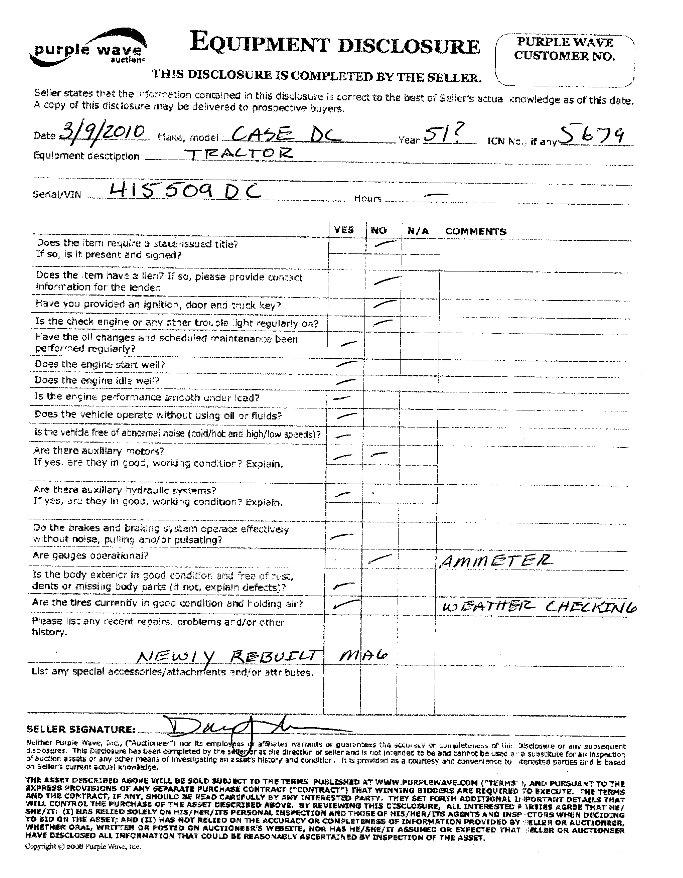 purple wave
auction
EQUIPMENT DISCLOSURE
PURPLE WAVE
CUSTOMER NO.
THIS DISCLOSURE IS COMPLETED BY THE SELLER.
Seller states that the information contained in this disclosure is correct to the best of Seller's actual knowledge as of this date.
A copy of this disclosure may be delivered to prospective buyers.
Date 3/9/2010 Make, model CASE DC Year 51? ICN No., if any 5679
Equipment description TRACTOR
Serial/VIN 415509DC Hours —
YES NO N/A COMMENTS
Does the item require a state-issued title?
If so, is it present and signed?
Does the item have a lien? If so, please provide contact
information for the lender.
Have you provided an ignition, door and truck key?
Is the check engine or any other trouble light regularly on?
Have the oil changes and scheduled maintenance been
performed regularly?
Does the engine start well?
Does the engine idle well?
Is the engine performance smooth under load?
Does the vehicle operate without using oil or fluids?
Is the vehicle free of abnormal noise (cold/hot and high/low speeds)?
Are there auxiliary motors?
If yes, are they in good, working condition? Explain.
Are there auxiliary hydraulic systems?
If yes, are they in good, working condition? Explain.
Do the brakes and braking system operate effectively
without noise, pulling and/or pulsating?
Are gauges operational? AMMETER
Is the body exterior in good condition and free of rust,
dents or missing body parts (if not, explain defects)?
Are the tires currently in good condition and holding air? WEATHER CHECKING
Please list any recent repairs, problems and/or other
history.
NEWLY REBUILT MAG
List any special accessories/attachments and/or attributes.
SELLER SIGNATURE:
Neither Purple Wave, Inc., ("Auctioneer") nor its employees or affiliates warrants or guarantees the accuracy or completeness of the Disclosure or any subsequent
disclosures. This Disclosure has been completed by the seller or at the direction of seller and is not intended to be and cannot be used as a substitute for an inspection
of auction assets or any other means of investigating an asset's history and condition. It is provided as a courtesy and convenience to interested parties and is based
on Seller's current actual knowledge.
THE ASSET DESCRIBED ABOVE WILL BE SOLD SUBJECT TO THE TERMS PUBLISHED AT WWW.PURPLEWAVE.COM ("TERMS"), AND PURSUANT TO THE
EXPRESS PROVISIONS OF ANY SEPARATE PURCHASE CONTRACT ("CONTRACT") THAT WINNING BIDDERS ARE REQUIRED TO EXECUTE. THE TERMS
AND THE CONTRACT, IF ANY, SHOULD BE READ CAREFULLY BY ANY INTERESTED PARTY. THEY SET FORTH ADDITIONAL IMPORTANT DETAILS THAT
WILL CONTROL THE PURCHASE OF THE ASSET DESCRIBED ABOVE. BY REVIEWING THIS DISCLOSURE, ALL INTERESTED PARTIES AGREE THAT HE/
SHE/IT: (I) HAS RELIED SOLELY ON HIS/HER/ITS PERSONAL INSPECTION AND THOSE OF HIS/HER/ITS AGENTS AND INSPECTORS WHEN DECIDING
TO BID ON THE ASSET; AND (II) HAS NOT RELIED ON THE ACCURACY OR COMPLETENESS OF INFORMATION PROVIDED BY SELLER OR AUCTIONEER,
WHETHER ORAL, WRITTEN OR POSTED ON AUCTIONEER'S WEBSITE, NOR HAS HE/SHE/IT ASSUMED OR EXPECTED THAT SELLER OR AUCTIONEER
HAVE DISCLOSED ALL INFORMATION THAT COULD BE REASONABLY ASCERTAINED BY INSPECTION OF THE ASSET.
Copyright © 2008 Purple Wave, Inc.